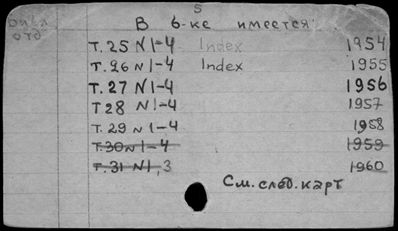 5
В б-ке имеется:
отд
Т. 25 N 1-4 Index 1954
Т. 26 N 1-4 Index 1955
Т. 27 N 1-4 1956
Т 28 N 1-4 1957
Т. 29 N 1-4 1958
Т. 30 N 1-4 1959
Т. 31 N 1, 3 1960
См. след. карт